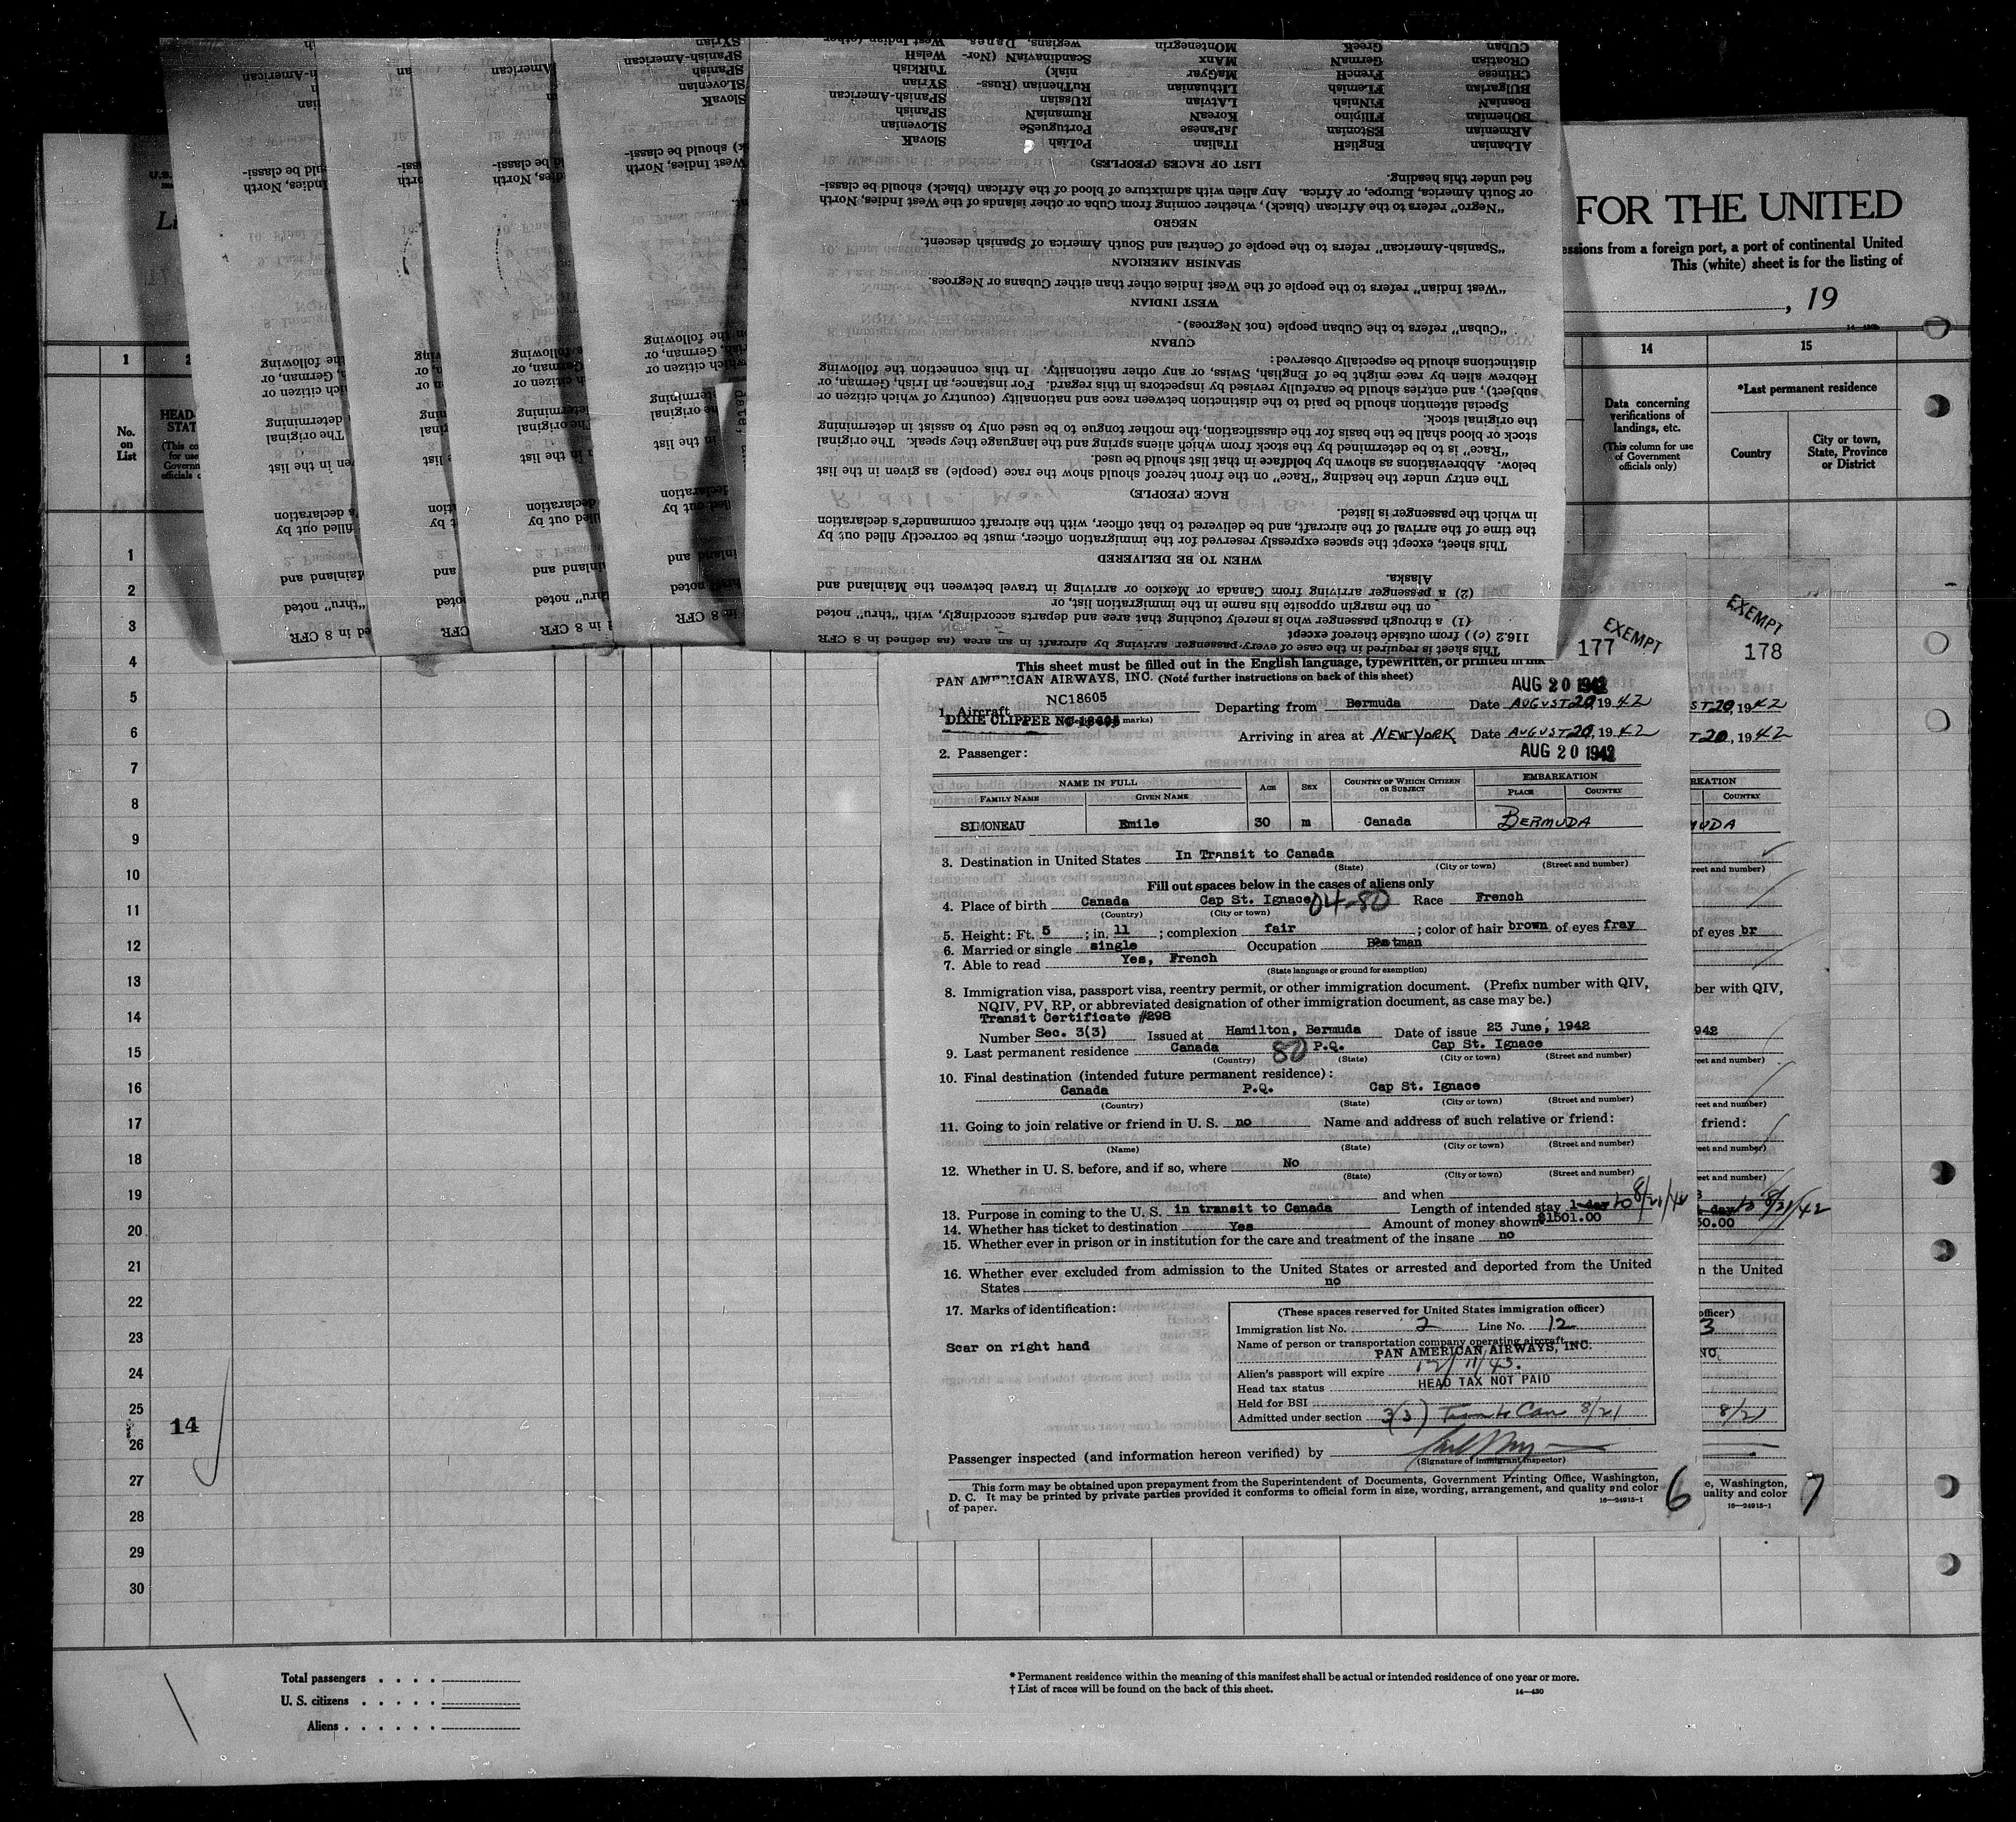 FOR THE UNITED
essions from a foreign port, a port of continental United
This (white) sheet is for the listing of
, 19
1
14
15
No. on List
Data concerning verifications of landings, etc.
(This column for use of Government officials only)
*Last permanent residence
Country
City or town, State, Province or District
This sheet is required in the case of every passenger arriving by aircraft in an area (as defined in 8 CFR
116.2 (c)) from outside thereof except
(1) a through passenger who is merely touching that area and departs accordingly, with "thru" noted
on the margin opposite his name in the immigration list, or
(2) a passenger arriving from Canada or Mexico or arriving in travel between the Mainland and
Alaska.
WHEN TO BE DELIVERED
This sheet, except the spaces expressly reserved for the immigration officer, must be correctly filled out by
the time of the arrival of the aircraft, and be delivered to that officer, with the aircraft commander's declaration
in which the passenger is listed.
RACE (PEOPLE)
The entry under the heading "Race" on the front hereof should show the race (people) as given in the list
below. Abbreviations as shown by boldface in that list should be used.
"Race" is to be determined by the stock from which aliens spring and the language they speak. The original
stock or blood shall be the basis for the classification, the mother tongue to be used only to assist in determining
the original stock.
Special attention should be paid to the distinction between race and nationality (country of which citizen or
subject), and entries should be carefully revised by inspectors in this regard. For instance, an Irish, German, or
Hebrew alien by race might be of English, Swiss, or any other nationality. In this connection the following
distinctions should be especially observed:
CUBAN
"Cuban" refers to the Cuban people (not Negroes).
WEST INDIAN
"West Indian" refers to the people of the West Indies other than either Cubans or Negroes.
SPANISH AMERICAN
"Spanish-American" refers to the people of Central and South America of Spanish descent.
NEGRO
"Negro" refers to the African (black), whether coming from Cuba or other islands of the West Indies, North
or South America, Europe, or Africa. Any alien with admixture of blood of the African (black) should be classi-
fied under this heading.
LIST OF RACES (PEOPLES)
ALbanian ENglisH ITalian PoLish SlovaK
ARmenian EStonian JaPanese PortugueSe SLOvenian
BOhemian FIlipino KoreaN RumaniaN SPanish
BosniaN FiNNish LATvian RUssian SPAnish-American
BUlgarian FLemish LIthuanian RuThenian (Russ- SYrian
CHinese FrencH MaGyar niak) TuRkish
CRoatian GermaN MAnx ScandinaviaN (Nor- WelsH
CUban GreeK MOntenegrin wegians, Danes West Indian (other
EXEMPT
177
EXEMPT
178
This sheet must be filled out in the English language, typewritten, or printed in ink
PAN AMERICAN AIRWAYS, INC. (Note further instructions on back of this sheet)
AUG 20 1942
NC18605
1. Aircraft
DIXIE CLIPPER NC-18605 marks)
Departing from Bermuda Date AUGUST 20, 1942
Arriving in area at NEW YORK Date AUGUST 20, 1942
AUG 20 1942
2. Passenger:
NAME IN FULL
FAMILY NAME GIVEN NAME AGE SEX COUNTRY OF WHICH CITIZEN OR SUBJECT EMBARKATION PLACE COUNTRY
SIMONEAU Emile 30 m Canada BERMUDA
3. Destination in United States In Transit to Canada
(State) (City or town) (Street and number)
Fill out spaces below in the cases of aliens only
4. Place of birth Canada Cap St. Ignace 04-80 Race French
(Country) (City or town)
5. Height: Ft. 5; in. 11; complexion fair; color of hair brown of eyes fray
6. Married or single single Occupation Boatman
7. Able to read Yes, French
(State language or ground for exemption)
8. Immigration visa, passport visa, reentry permit, or other immigration document. (Prefix number with QIV,
NQIV, PV, RP, or abbreviated designation of other immigration document, as case may be.)
Transit Certificate #298
Number Sec. 3(3) Issued at Hamilton, Bermuda Date of issue 23 June, 1942
9. Last permanent residence Canada 80 P.Q. Cap St. Ignace
(Country) (State) (City or town) (Street and number)
10. Final destination (intended future permanent residence):
Canada P.Q. Cap St. Ignace
(Country) (State) (City or town) (Street and number)
11. Going to join relative or friend in U. S. no Name and address of such relative or friend:
(Name) (State) (City or town) (Street and number)
12. Whether in U. S. before, and if so, where No
(State) (City or town) (Street and number)
and when
13. Purpose in coming to the U. S. in transit to Canada Length of intended stay 1 day to 8/21/42
14. Whether has ticket to destination Yes Amount of money shown $1501.00
15. Whether ever in prison or in institution for the care and treatment of the insane no
16. Whether ever excluded from admission to the United States or arrested and deported from the United
States no
17. Marks of identification:
Scar on right hand
(These spaces reserved for United States immigration officer)
Immigration list No. 2 Line No. 12
Name of person or transportation company operating aircraft
PAN AMERICAN AIRWAYS, INC.
Alien's passport will expire 12/11/43.
Head tax status HEAD TAX NOT PAID
Held for BSI
Admitted under section 3(3) Trans to Can 8/21
Passenger inspected (and information hereon verified) by
(Signature of immigrant inspector)
This form may be obtained upon prepayment from the Superintendent of Documents, Government Printing Office, Washington,
D. C. It may be printed by private parties provided it conforms to official form in size, wording, arrangement, and quality and color
of paper.
16—24915-1
6
7
1
2
3
4
5
6
7
8
9
10
11
12
13
14
15
16
17
18
19
20
21
22
23
24
25
14
26
27
28
29
30
Total passengers . . . .
U. S. citizens . . . . .
Aliens . . . . . .
* Permanent residence within the meaning of this manifest shall be actual or intended residence of one year or more.
† List of races will be found on the back of this sheet.
14—430